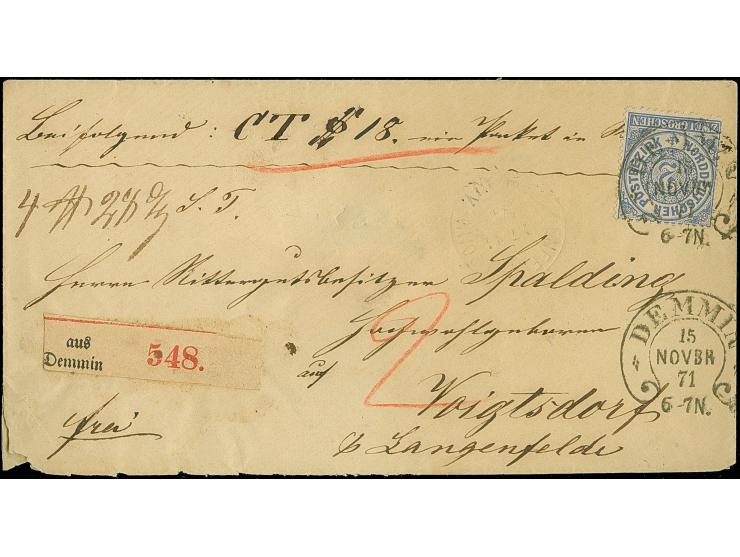 Beifolgend: CT $ 18. ein Paket in
ZWEI GROSCHEN
NORDDEUTSCHER POSTBEZIRK
2
NOVBR
6-7N.
Herrn Rittergutsbesitzer Spalding
Hochwohlgeboren
2
aus
Demmin
548.
auf
Voigtsdorf
frei
b/ Langenfelde
DEMMIN
15
NOVBR
71
6-7N.